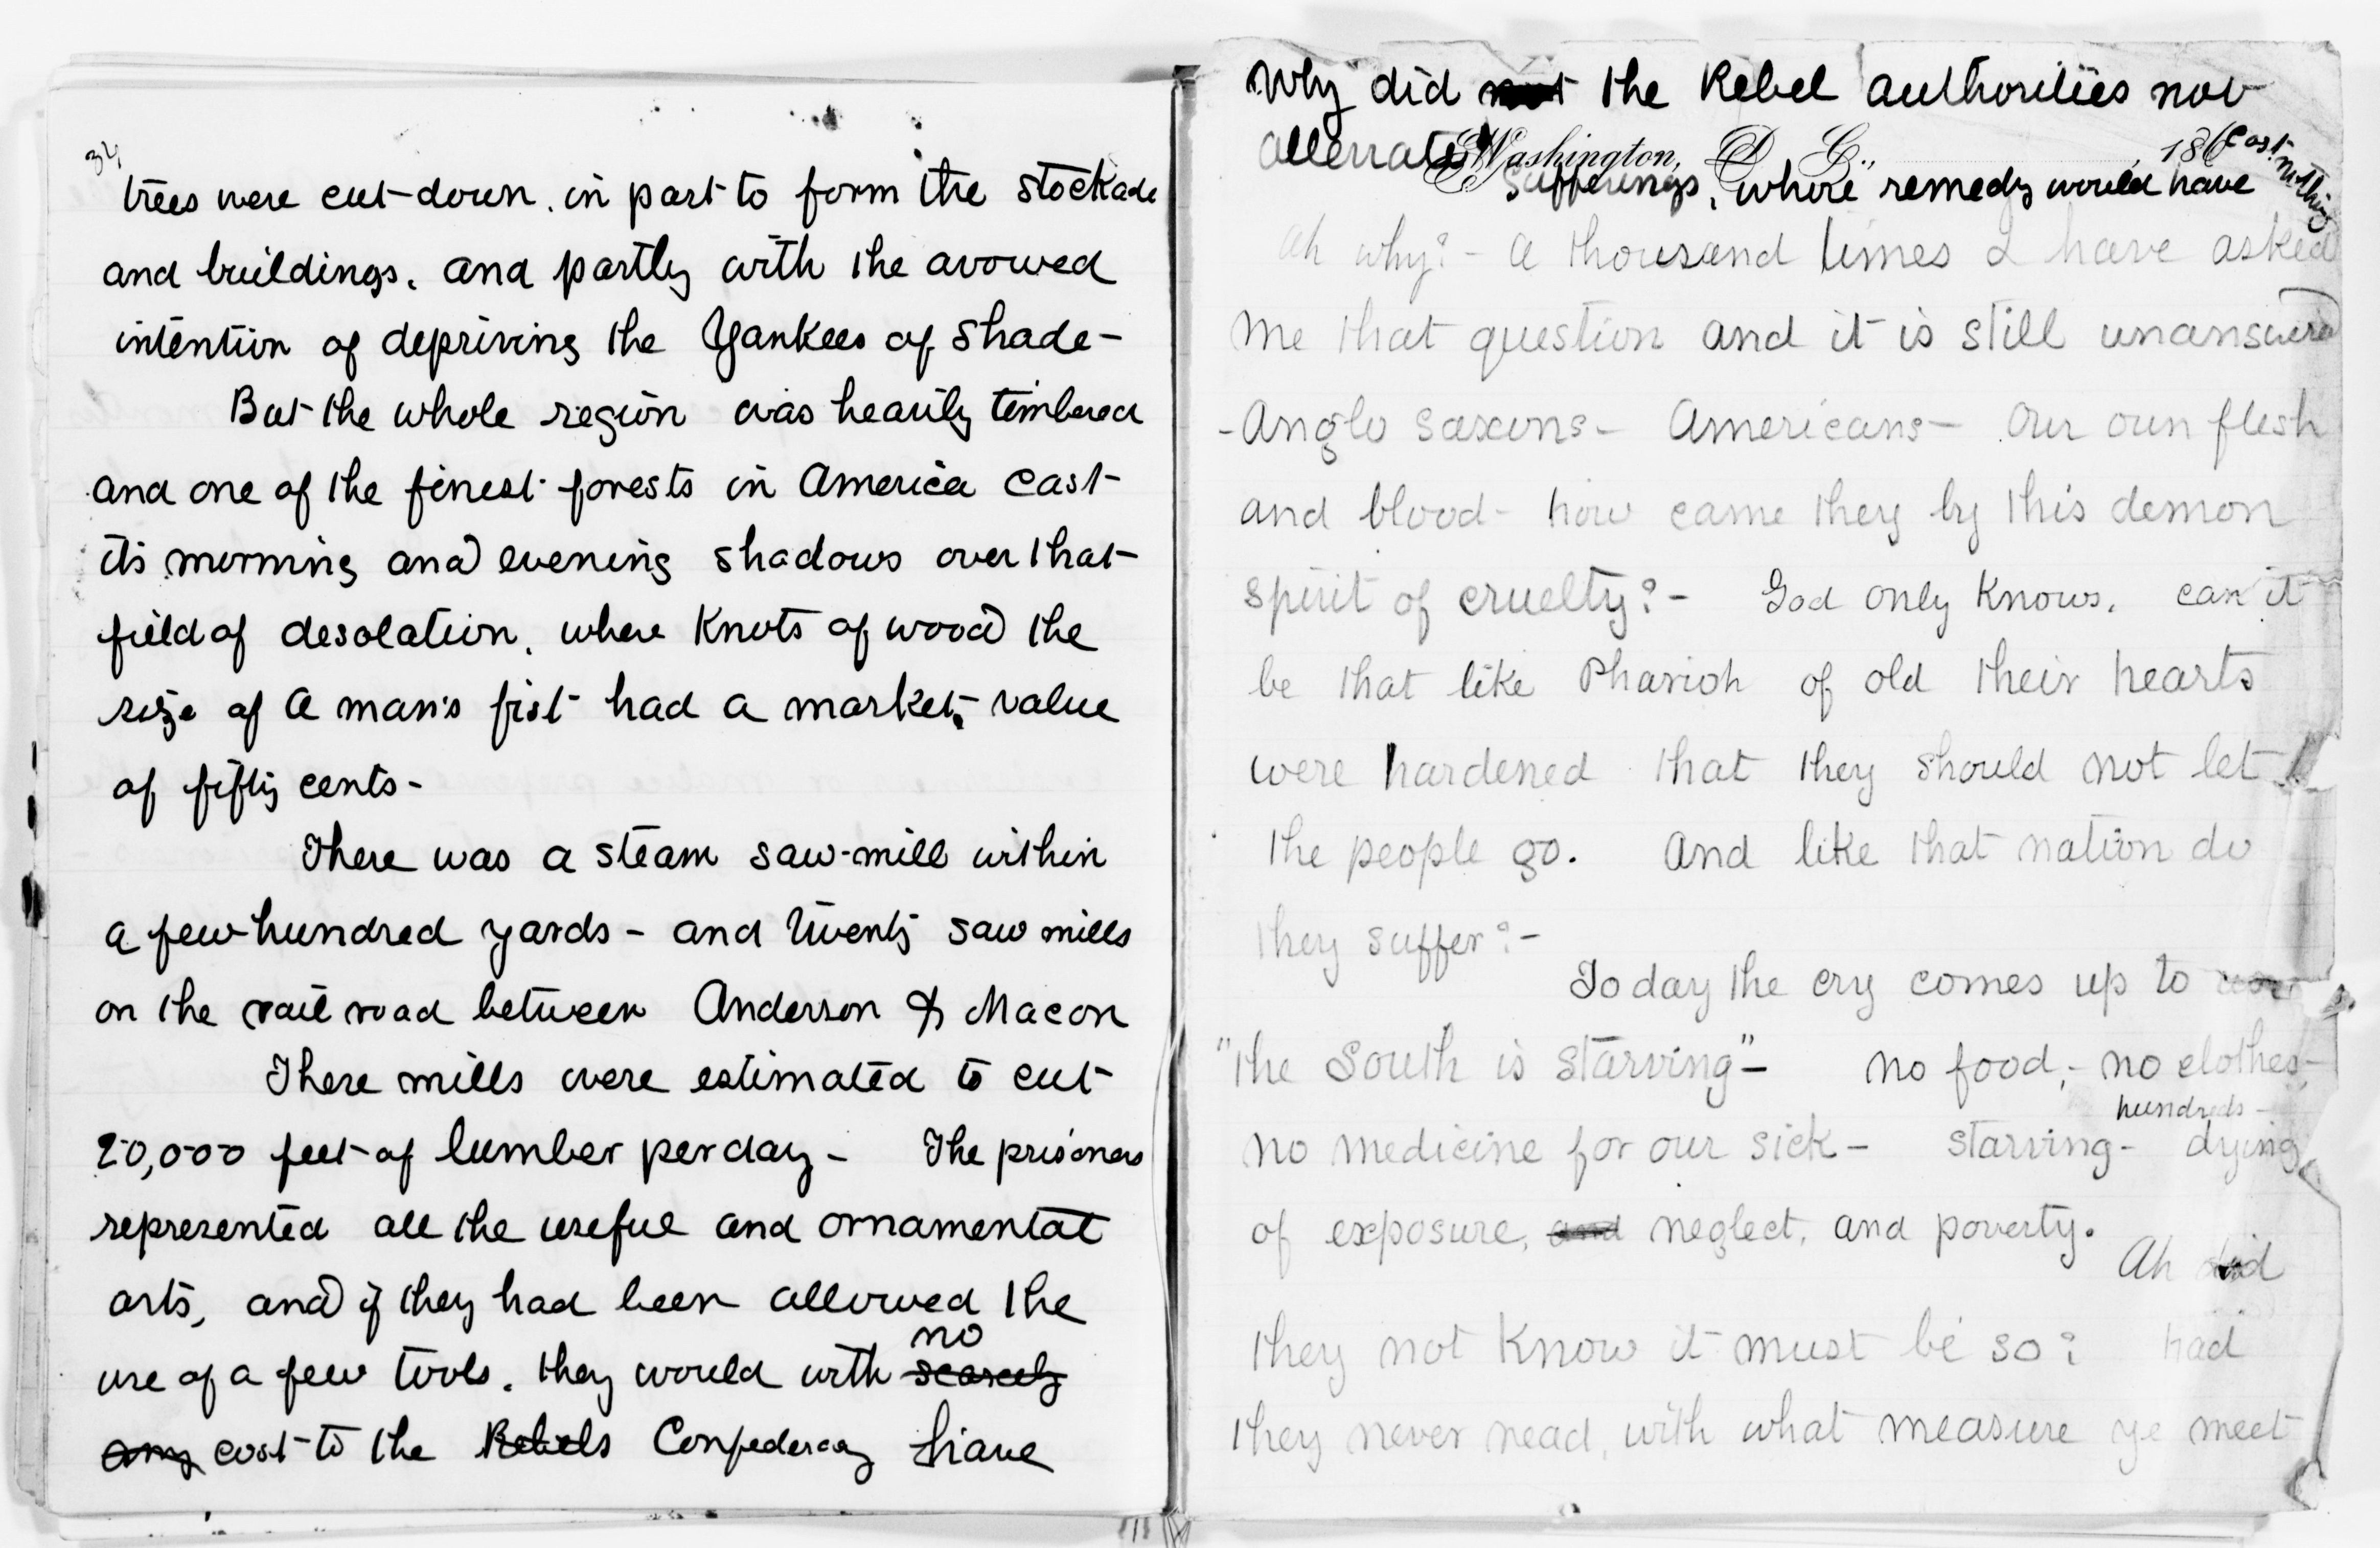 34
trees were cut down, in part to form the stockade
and buildings, and partly with the avowed
intention of depriving the Yankees of shade-
But the whole region was heavily timbered
and one of the finest forests in America cast
its morning and evening shadows over that
field of desolation, where knots of wood the
size of a man's fist had a market value
of fifty cents-
There was a steam saw-mill within
a few hundred yards - and twenty saw mills
on the rail road between Anderson & Macon
These mills were estimated to cut
20,000 feet of lumber per day - The prisoners
represented all the useful and ornamental
arts, and if they had been allowed the
no
use of a few tools, they would with scarcely
any cost to the Rebels Confederacy have
Why did not the Rebel authorities not
alleviate
Washington, D. C., 186
cost nothing
sufferings, whose remedy would have
Ah why? - a thousand times I have asked
me that question and it is still unanswered
- Anglo Saxons - Americans - Our own flesh
and blood - how came they by this demon
spirit of cruelty? - God only knows. can it
be that like Pharioh of old their hearts
were hardened that they should not let
the people go. And like that nation do
they suffer? -
Today the cry comes up to
"the South is starving" - no food, - no clothes -
hundreds -
no medicine for our sick - starving - dying
of exposure, and neglect, and poverty.
Ah did
they not know it must be so? had
they never read, with what measure ye meet